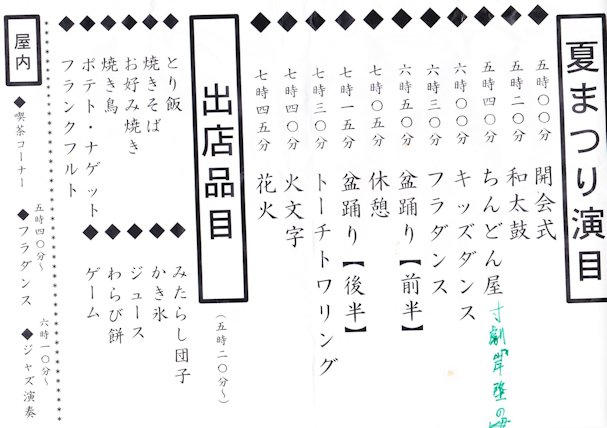 夏まつり演目
◆五時〇〇分 開会式
◆五時二〇分 和太鼓
◆五時四〇分 ちんどん屋 寸劇『岸壁の
◆六時〇〇分 キッズダンス
◆六時三〇分 フラダンス
◆六時五〇分 盆踊り【前半】
◆七時〇五分 休憩
◆七時一五分 盆踊り【後半】
◆七時三〇分 トーチトワリング
◆七時四〇分 火文字
◆七時四五分 花火
出店品目
(五時二〇分~)
◆とり飯
◆焼きそば
◆お好み焼き
◆焼き鳥
◆ポテト・ナゲット
◆フランクフルト
◆みたらし団子
◆かき氷
◆ジュース
◆わらび餅
◆ゲーム
屋内
◆喫茶コーナー
五時四〇分~
◆フラダンス
六時一〇分~
◆ジャズ演奏